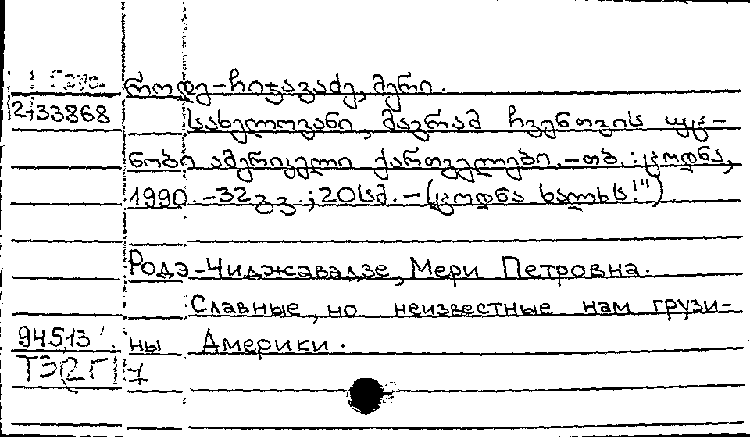 როდე-ჩიჯავაძე, მერი.
2-33868 სახელოვანი, მაგრამ ჩვენთვის უც-
ნობი ამერიკელი ქართველები.-თბ.: ცოდნა,
1990.-32გვ.; 20სმ.-(ცოდნა ხალხს!")
Родэ-Чиджавадзе, Мери Петровна.
Славные, но неизвестные нам грузи-
94513 ны Америки.